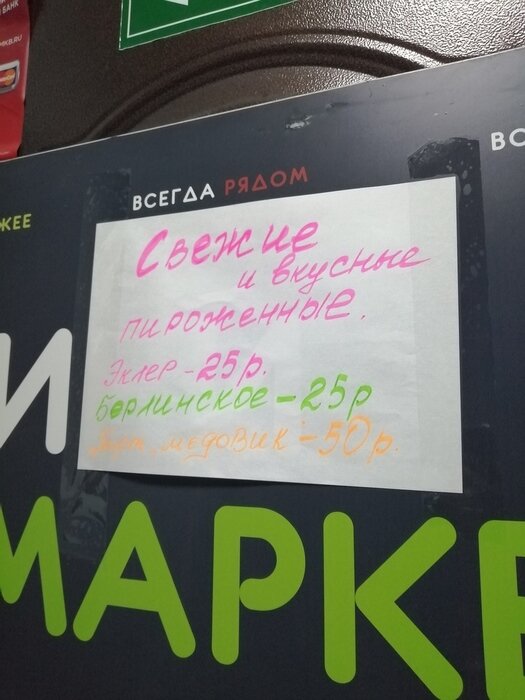 БАНК
МКВ.RU
ВСЕГДА РЯДОМ
ВС
ЖЕЕ
Свежие
и вкусные
пироженные.
Эклер - 25р.
Берлинское - 25р
Торт, медовик - 50р.
И
МАРКЕ